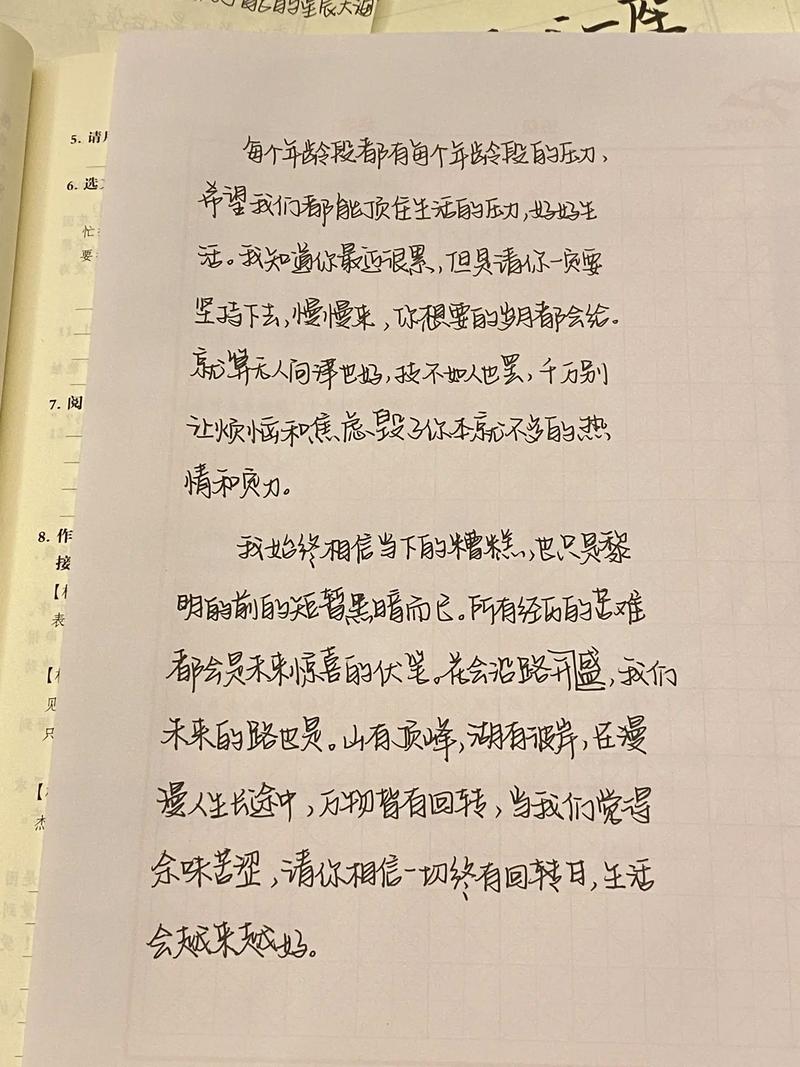 的星辰大海
一陈
5. 请用
6. 选
忙
要
7. 阅
8. 作
接
表
见
只
杰
每个年龄段都有每个年龄段的压力,
希望我们都能顶住生活的压力,好好生
活。我知道你最近很累,但是请你一定要
坚持下去,慢慢来,你想要的岁月都会给。
就算无人问津也好,技不如人也罢,千万别
让烦恼和焦虑毁了你本就不多的热
情和定力。
我始终相信当下的糟糕,也只是黎
明的前的短暂黑暗而已。所有经历的苦难
都会是未来惊喜的伏笔。花会沿路开盛,我们
未来的路也是。山有顶峰,湖有彼岸,在漫
漫人生长途中,万物皆有回转,当我们觉得
余味苦涩,请你相信一切终有回转日,生活
会越来越好。